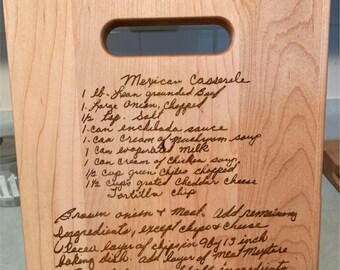 Mexican Casserole
1 lb. Lean grounded Beef
1 Large onion, chopped
1½ tsp. Salt
1 can enchilada sauce
1 can cream of mushroom soup
1 can evaporated milk
1 can cream of chicken soup
½ cup green chiles chopped
1½ cups grated cheddar cheese
Tortilla chip
Brown onion & meat. Add remaining
ingredients, except chips & cheese
Placed layer of chips in 9 by 13 inch
baking dish. add layer of meat mixture
ingredients